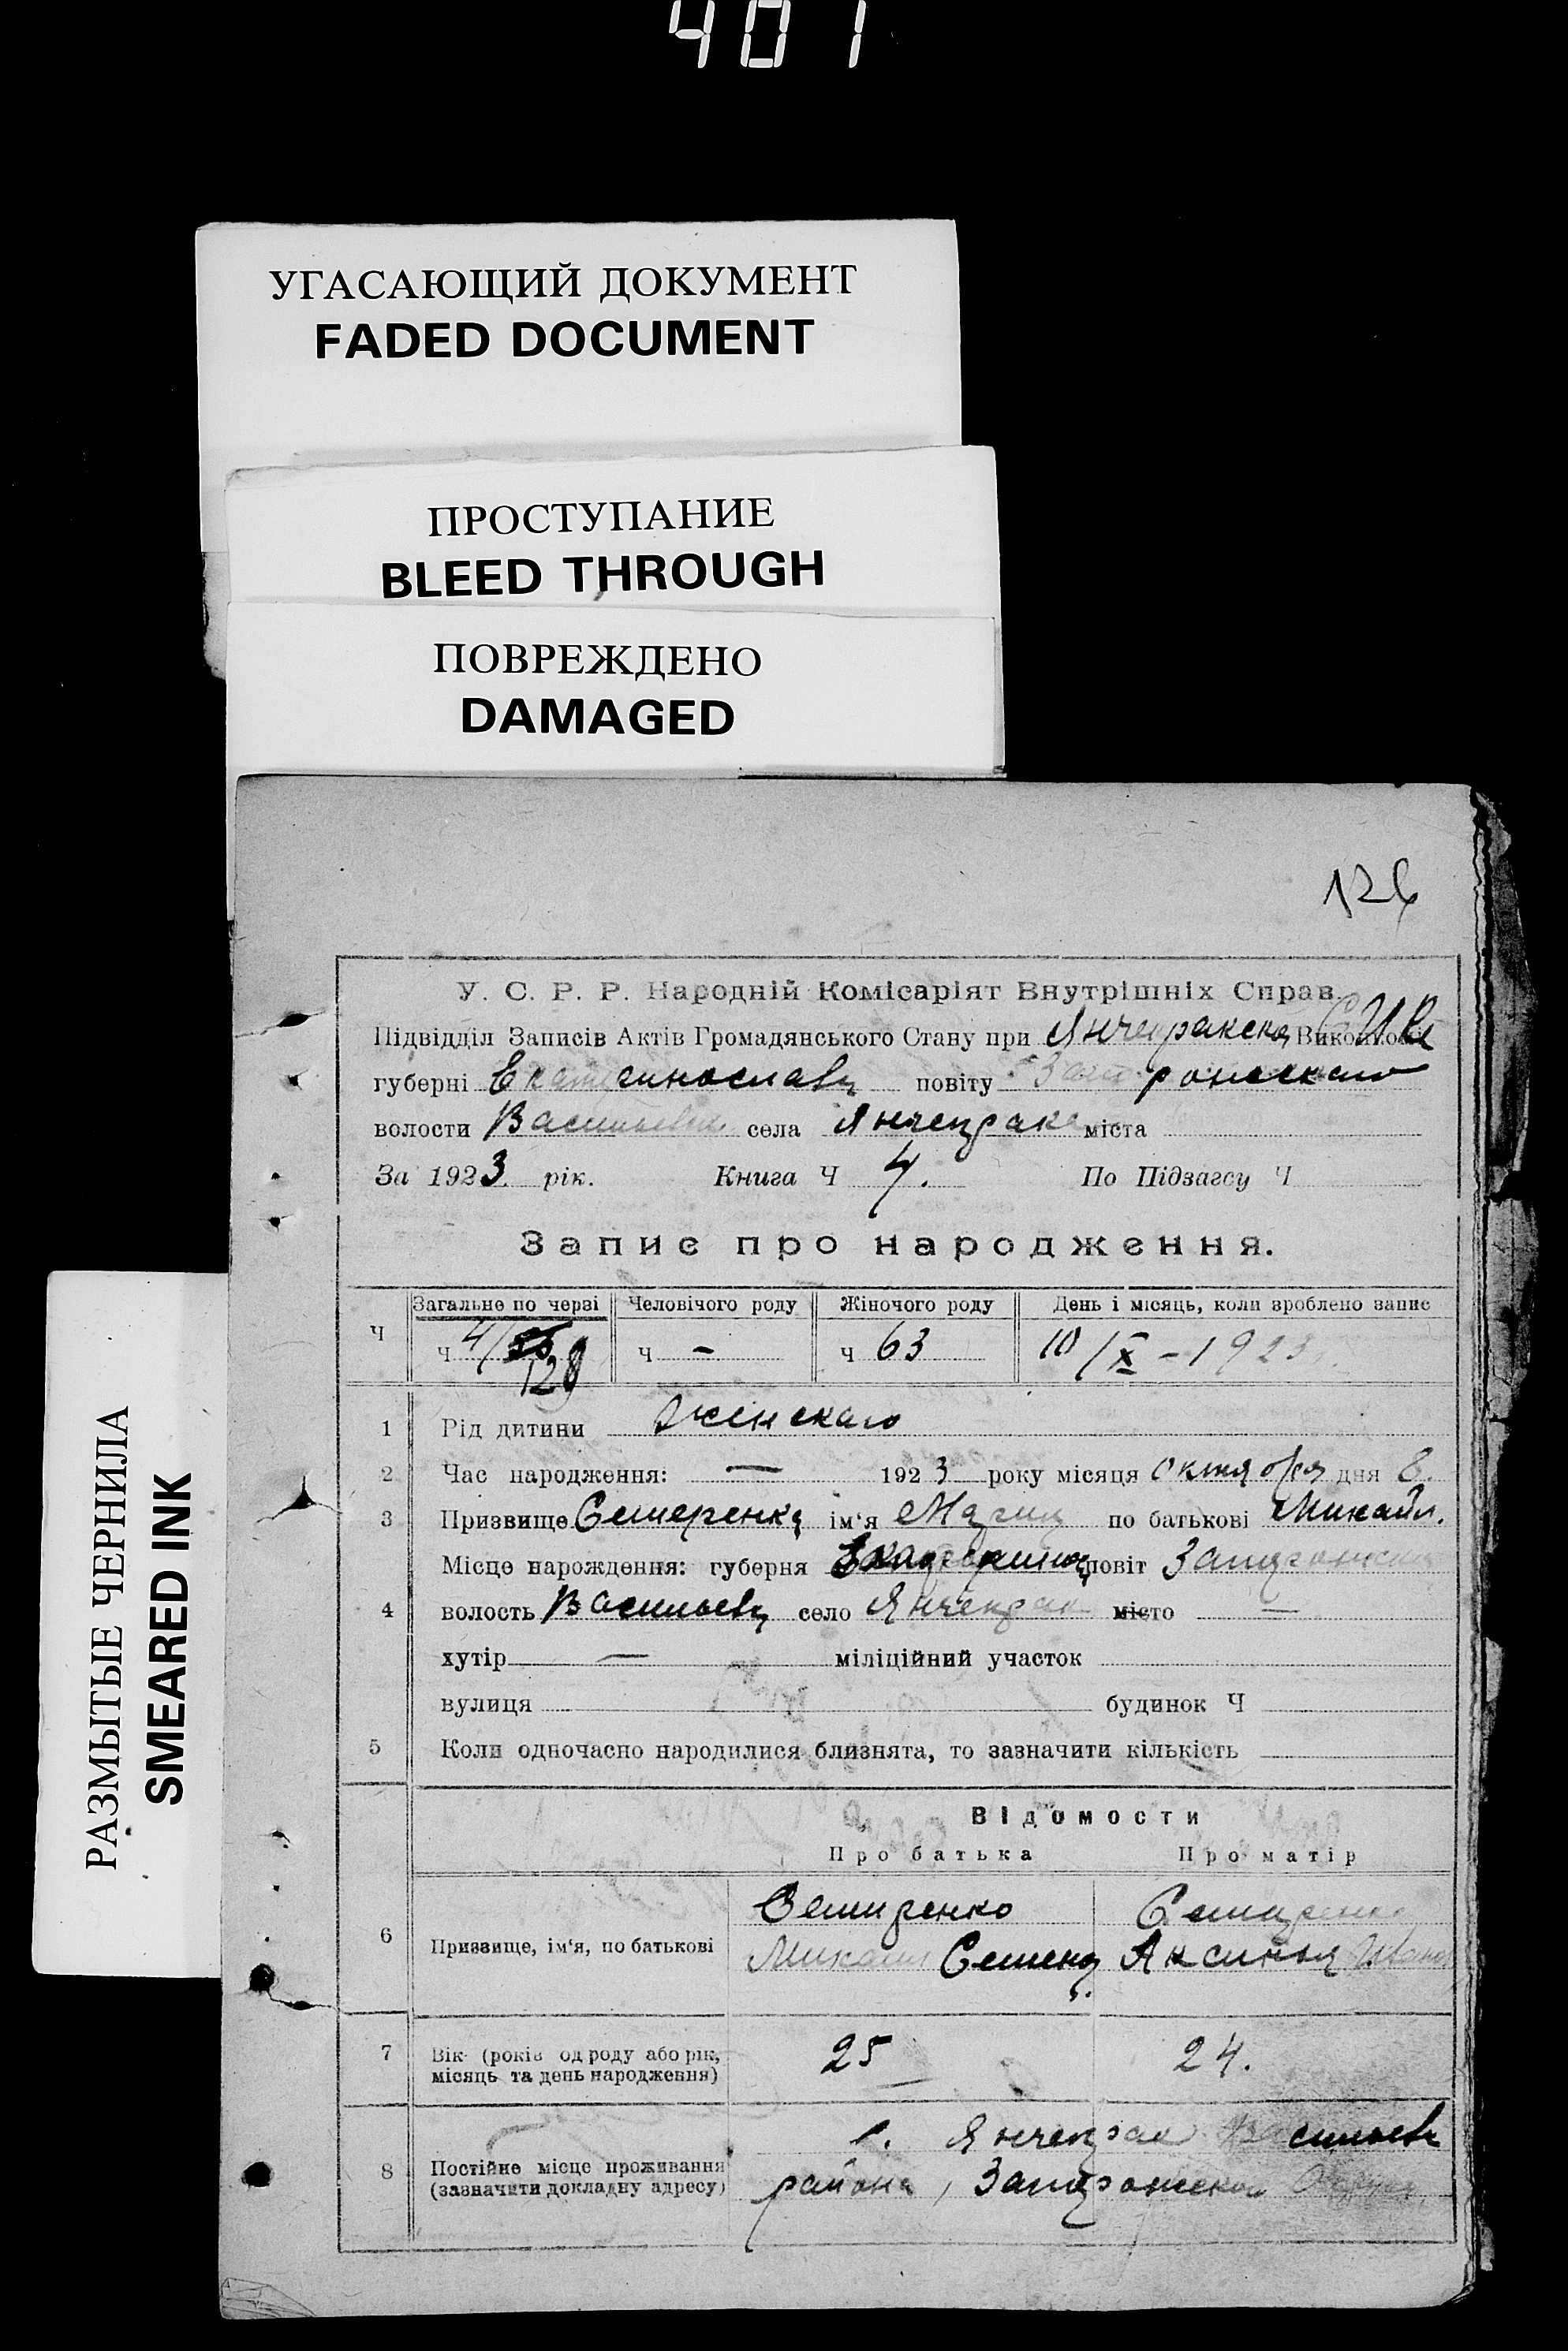 401
УГАСАЮЩИЙ ДОКУМЕНТ
FADED DOCUMENT
ПРОСТУПАНИЕ
BLEED THROUGH
ПОВРЕЖДЕНО
DAMAGED
РАЗМЫТЫЕ ЧЕРНИЛА
SMEARED INK
126
У. С. Р. Р. Народній Комісаріят Внутрішніх Справ
Підвідділ Записів Актів Громадянського Стану при Янчекракском
губерні Екатеринославск повіту Запорожскаго
волости Васильевск села Янчекрак міста
За 1923 рік. Книга Ч 4. По Підзагсу Ч
Запис про народження.
Загальне по черзі Человічого роду Жіночого роду День і місяць, коли зроблено запис
Ч ч 4/ 128 ч - ч 63 10/X - 1923
1 Рід дитини женскаго
2 Час народження: — 1923 року місяця октября дня 8.
3 Призвище ім‘я Мария по батькові Михайл.
Місце нарождення: губерня повіт Запорожский
4 волость Васильевск село Янчекрак місто —
хутір — міліційний участок
вулиця будинок Ч
5 Коли одночасно народилися близнята, то зазначити кількість
Відомости
Про батька Про матір
6 Призвище, ім‘я, по батькові
Михаил Семен. Аксинья Иван
7 Вік (років од роду або рік, місяць та день народження) 25 24.
8 Постійне місце проживання (зазначити докладну адресу)
с. Янчекрак Васильевск
района, Запорожской